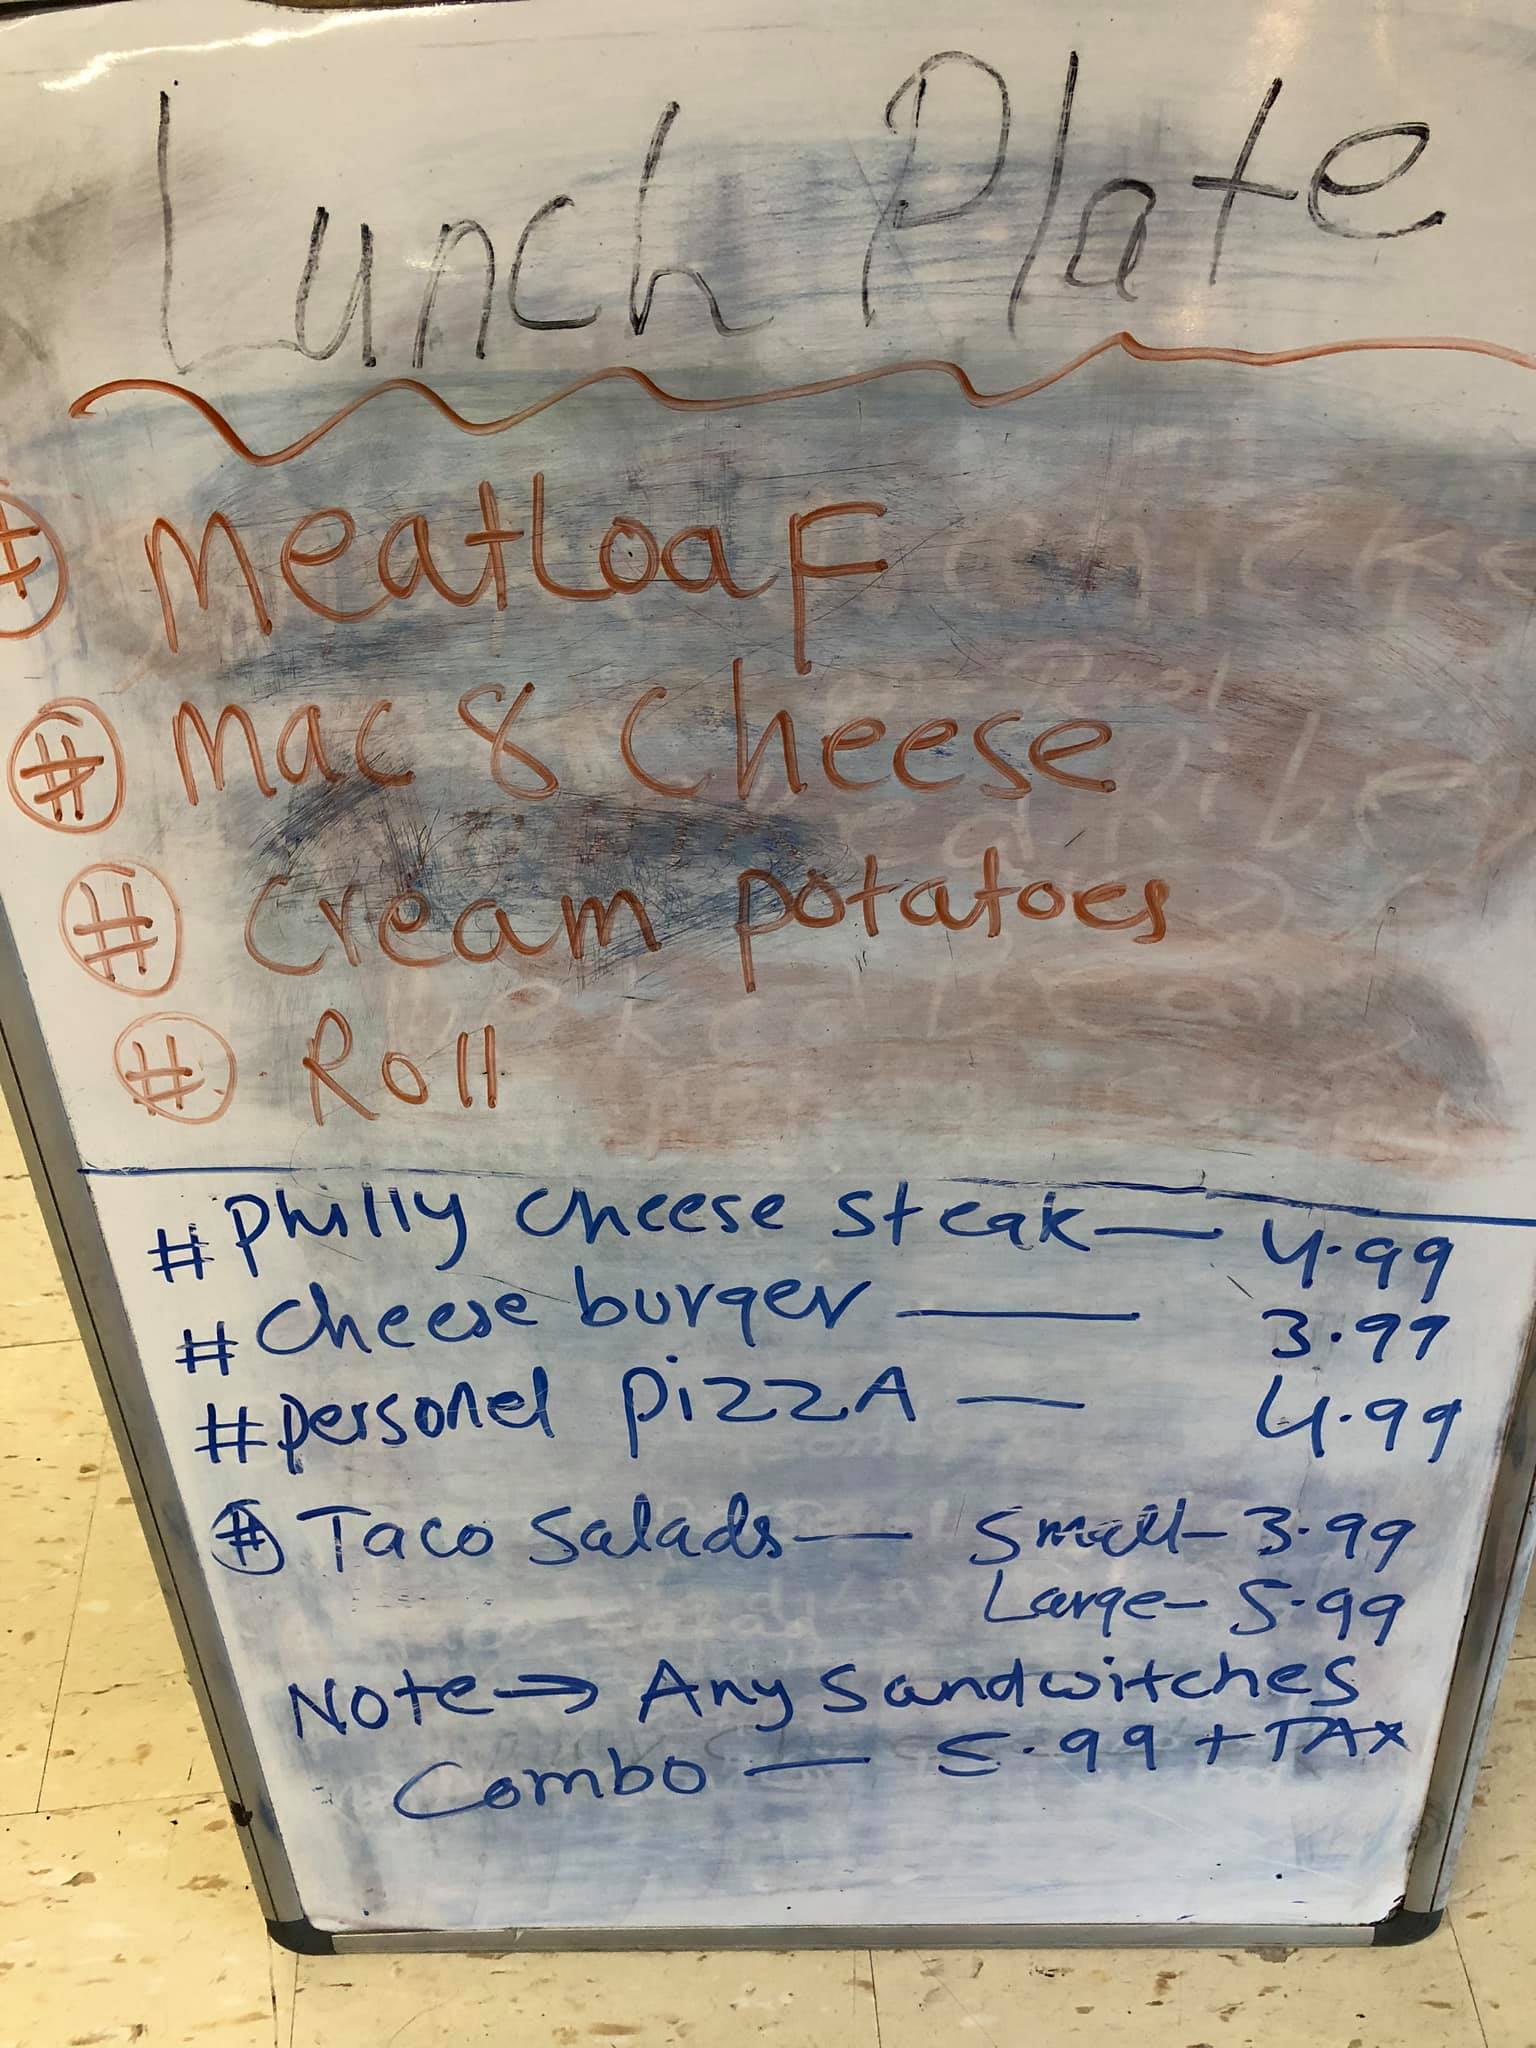 Lunch Plate
# Meatloaf
# Mac & Cheese
# Cream potatoes
# Roll
# Philly Cheese Steak — 4.99
# Cheese burger — 3.99
# personel PizzA — 4.99
# Taco Salads — Small - 3.99
Large - 5.99
Note → Any Sandwitches
Combo — 5.99 + TAx